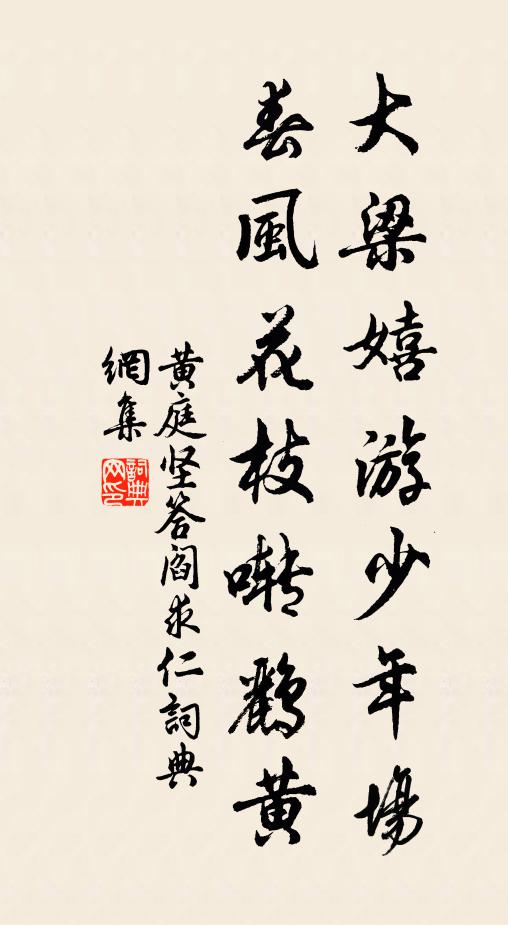 大梁嬉游少年場
春風花枝囀鸝黄
黄庭坚答阎求仁詞典
網集
詞典网印